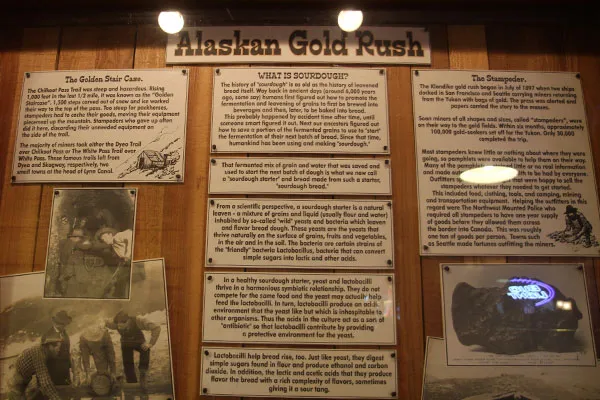 Alaskan Gold Rush
The Golden Stair Case.
The Chilkoot Pass Trail was steep and hazardous. Rising
1,000 feet in the last 1/2 mile, it was known as the "Golden
Staircase". 1,500 steps carved out of snow and ice worked
their way to the top of the pass. Too steep for packhorses,
stampeders had to cache their goods, moving their equipment
piecemeal up the mountain. Stampeders who gave up often
did it here, discarding their unneeded equipment on
the side of the trail.
The majority of miners took either the Dyea Trail
over Chilkoot Pass or The White Pass Trail over
White Pass. These famous trails left from
Dyea and Skagway, respectively, two
small towns at the head of Lynn Canal.
WHAT IS SOURDOUGH?
The history of 'sourdough' is as old as the history of leavened
bread itself. Way back in ancient days (around 6,000 years
ago, some say) bakers first figured out how to promote the
fermentation and leavening of grains to first be brewed into
beverages and then, later, to be baked into bread.
This probably happened by accident time after time, until
someone smart figured it out. Next our ancestors figured out
how to save a portion of the fermented grains to use to 'start'
the fermentation of their next batch of bread. Since that time,
humankind has been using and making 'sourdough.'
That fermented mix of grain and water that was saved and
used to start the next batch of dough is what we now call
a "sourdough starter" and bread made from such a starter,
"sourdough bread."
From a scientific perspective, a sourdough starter is a natural
leaven - a mixture of grains and liquid (usually flour and water)
inhabited by so-called 'wild' yeasts and bacteria which leaven
and flavor bread dough. These yeasts are the yeasts that
thrive naturally on the surface of grains, fruits and vegetables,
in the air and in the soil. The bacteria are certain strains of
the "friendly" bacteria Lactobacillus, bacteria that can convert
simple sugars into lactic and other acids.
In a healthy sourdough starter, yeast and lactobacilli
thrive in a harmonious symbiotic relationship. They do not
compete for the same food and the yeast may actually help
feed the lactobacilli. In turn, lactobacilli produce an acidic
environment that the yeast like but which is inhospitable to
other organisms. Thus the acids in the culture act as a sort of
'antibiotic' so that lactobacilli contribute by providing
a protective environment for the yeast.
Lactobacilli help bread rise, too. Just like yeast, they digest
simple sugars found in flour and produce ethanol and carbon
dioxide. In addition, the lactic and acetic acids that they produce
flavor the bread with a rich complexity of flavors, sometimes
giving it a sour tang.
The Stampeder.
The Klondike gold rush began in July of 1897 when two ships
docked in San Francisco and Seattle carrying miners returning
from the Yukon with bags of gold. The press was alerted and
papers carried the story to the masses.
Soon miners of all shapes and sizes, called "stampeders", were
on their way to the gold fields. Within six months, approximately
100,000 gold-seekers set off for the Yukon. Only 30,000
completed the trip.
Most stampeders knew little or nothing about where they were
going, so pamphlets were available to help them on their way.
Many of the pamphlets had little or no real information
and made outfitting to be had by everyone.
Outfitters were happy to sell the
stampeders whatever they needed to get started.
This included food, clothing, tools, and camping, mining
and transportation equipment. Helping the outfitters in this
regard were The Northwest Mounted Police who
required all stampeders to have one year supply
of goods before they allowed them across
the border into Canada. This was roughly
one ton of goods per person. Towns such
as Seattle made fortunes outfitting the miners.